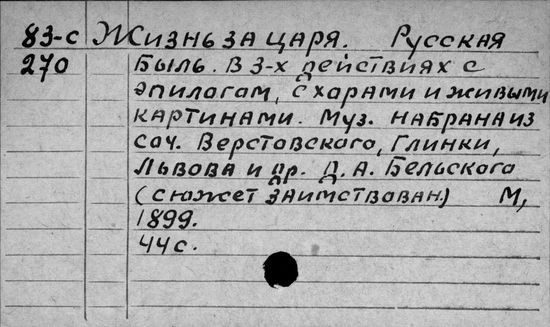 83-с Жизнь за царя. Русская
270 быль. В 3-х действиях с
эпилогам, с харами и живыми
картинами. Муз. набрана из
соч. Верстовского, Глинки,
Львова и др. Д. А. Бельского
(сюжет заимствован.) М,
1899.
44 с.